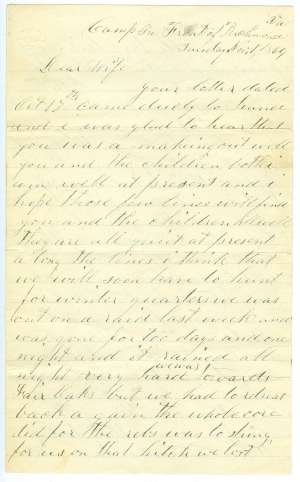 Camp In Front of Richmond Va
Tuesday Nov 1, 1864
Dear Wife
your letter dated
Oct 17th came duely to hand
and i was glad to hear that
you was a making out well
you and the children both i
am well at present and i
hope those few lines will find
you and the children all well
They are all quiet at present
a long the lines i think that
we will soon have to hunt
for winter quarters we was
out on a raid last week and
was gone for too days and one
night and it rained all
night very hard we was towards
Fair Oaks but we had to retreat
back a gain the whole core
did for the rebs was to strong
for us on that hitch we lost